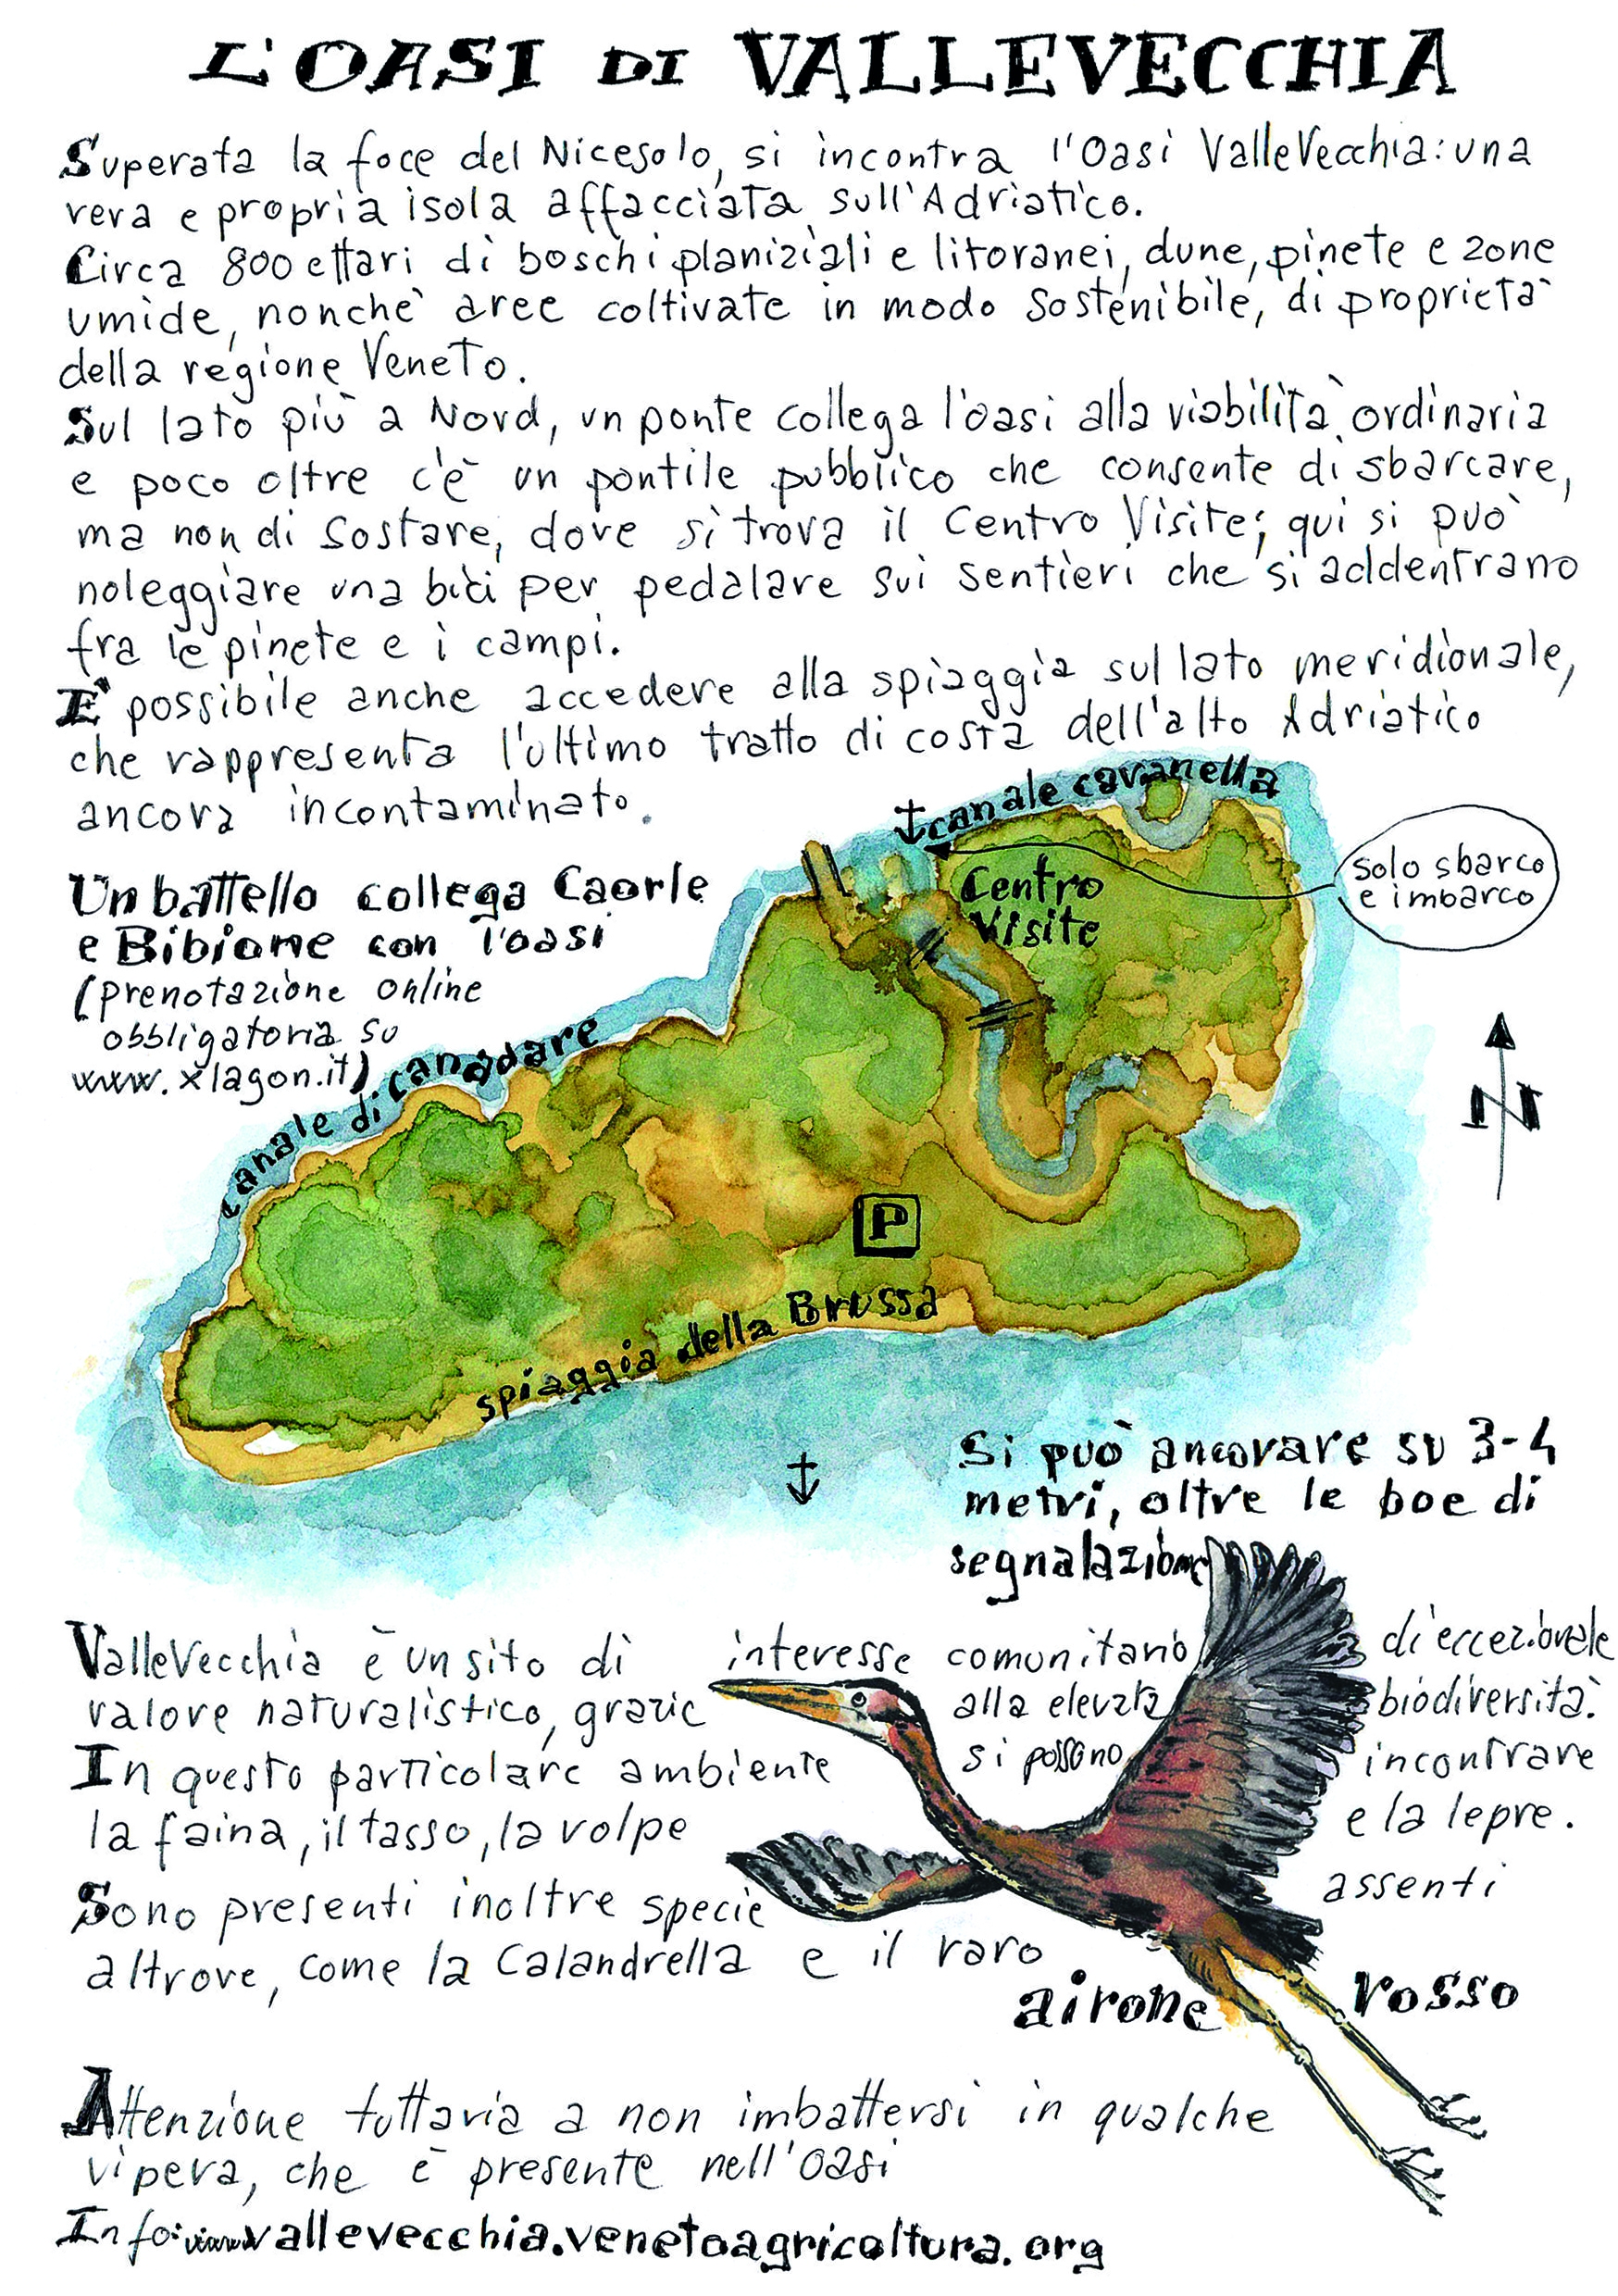 L'OASI DI VALLEVECCHIA
Superata la foce del Nicesolo, si incontra l'Oasi ValleVecchia: una
vera e propria isola affacciata sull'Adriatico.
Circa 800 ettari di boschi planiziali e litoranei, dune, pinete e zone
umide, nonchè aree coltivate in modo sostenibile, di proprietà
della regione Veneto.
Sul lato più a Nord, un ponte collega l'oasi alla viabilità ordinaria
e poco oltre c'è un pontile pubblico che consente di sbarcare,
ma non di sostare, dove si trova il Centro Visite; qui si può
noleggiare una bici per pedalare sui sentieri che si addentrano
fra le pinete e i campi.
E' possibile anche accedere alla spiaggia sul lato meridionale,
che rappresenta l'ultimo tratto di costa dell'alto Adriatico
ancora incontaminato.
canale cavanella
solo sbarco
e imbarco
Centro
Visite
Un battello collega Caorle
e Bibione con l'oasi
(prenotazione online
obbligatoria su
www.xlagon.it)
canale di Canadare
N
P
spiaggia della Brussa
Si può ancorare su 3-4
metri, oltre le boe di
segnalazione
ValleVecchia è un sito di interesse comunitario di eccezionale
valore naturalistico, grazie alla elevata biodiversità.
In questo particolare ambiente si possono incontrare
la faina, il tasso, la volpe e la lepre.
Sono presenti inoltre specie assenti
altrove, come la Calandrella e il raro
airone rosso
Attenzione tuttavia a non imbattersi in qualche
vipera, che è presente nell'oasi
Info: www.vallevecchia.venetoagricoltura.org